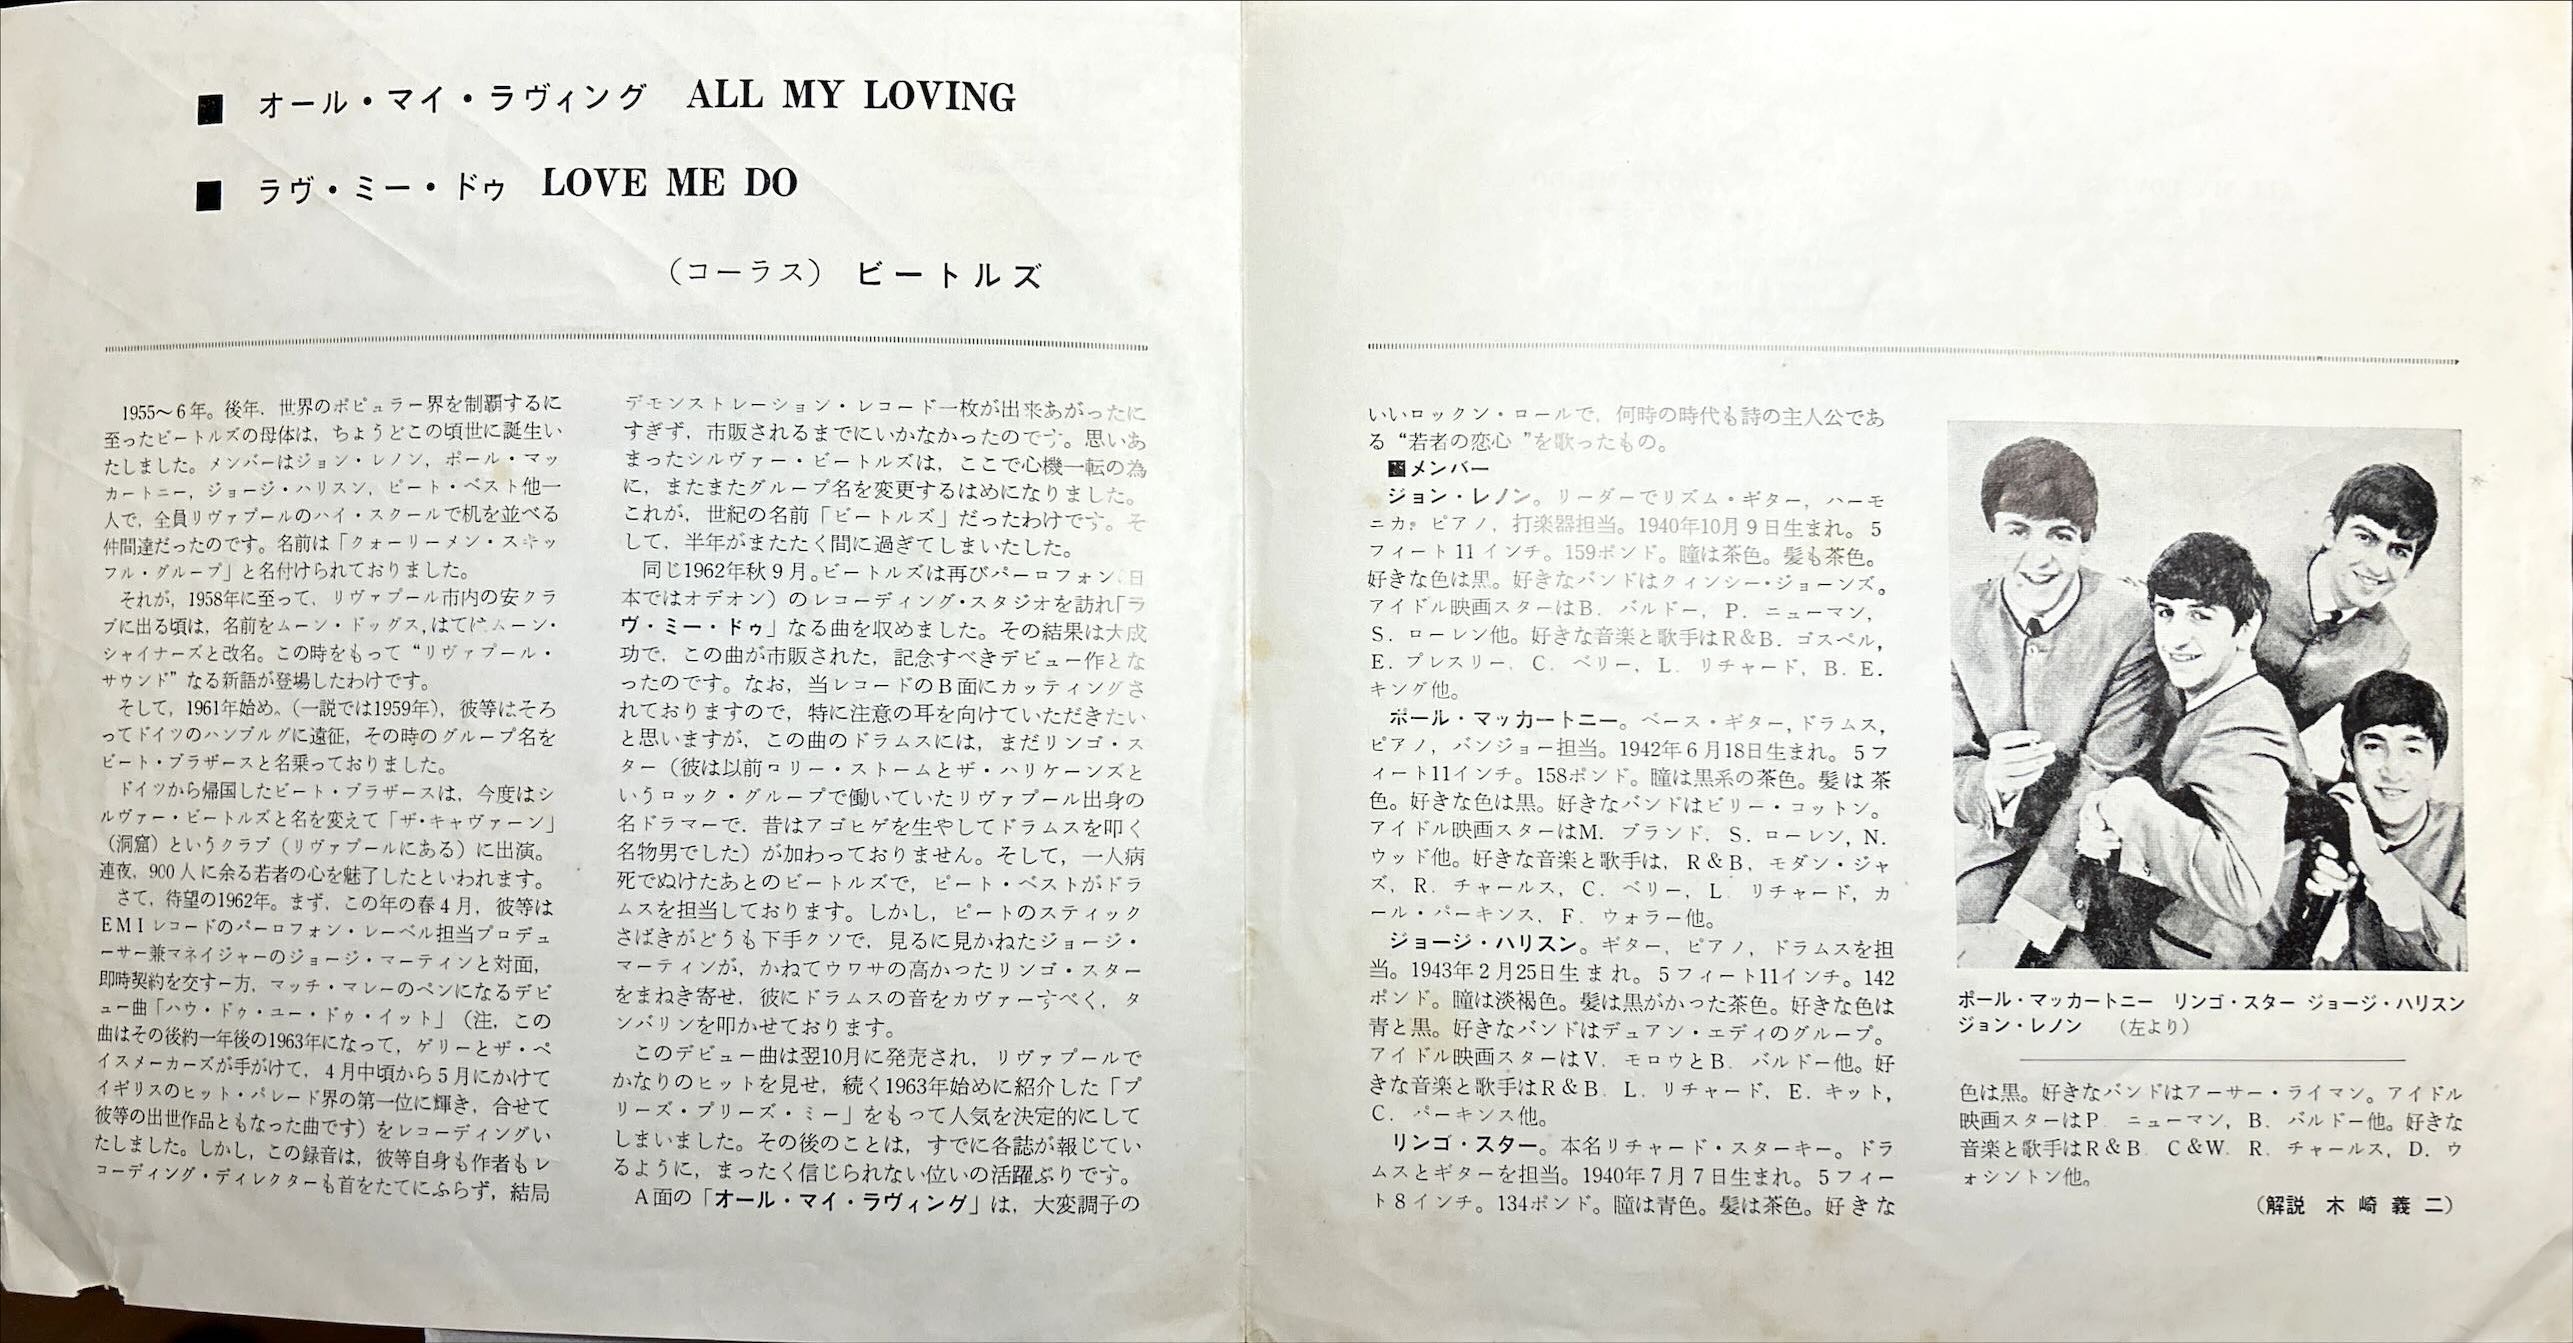 ■ オール・マイ・ラヴィング ALL MY LOVING
■ ラヴ・ミー・ドゥ LOVE ME DO
（コーラス） ビートルズ
1955〜6年。後年，世界のポピュラー界を制覇するに
至ったビートルズの母体は，ちょうどこの頃世に誕生い
たしました。メンバーはジョン・レノン，ポール・マッ
カートニー，ジョージ・ハリスン，ピート・ベスト他一
人で，全員リヴァプールのハイ・スクールで机を並べる
仲間達だったのです。名前は「クォーリーメン・スキッ
フル・グループ」と名付けられておりました。
それが，1958年に至って，リヴァプール市内の安クラ
ブに出る頃は，名前をムーン・ドッグス，はてはムーン・
シャイナーズと改名。この時をもって“リヴァプール・
サウンド”なる新語が登場したわけです。
そして，1961年始め、（一説では1959年），彼等はそろ
ってドイツのハンブルグに遠征，その時のグループ名を
ビート・ブラザースと名乗っておりました。
ドイツから帰国したビート・ブラザースは，今度はシ
ルヴァー・ビートルズと名を変えて「ザ・キャヴァーン」
（洞窟）というクラブ（リヴァプールにある）に出演。
連夜，900人に余る若者の心を魅了したといわれます。
さて，待望の1962年。まず，この年の春4月，彼等は
EMIレコードのパーロフォン・レーベル担当プロデュ
ーサー兼マネイジャーのジョージ・マーティンと対面，
即時契約を交す一方，マッチ・マレーのペンになるデビ
ュー曲「ハウ・ドゥ・ユー・ドゥ・イット」（注，この
曲はその後約一年後の1963年になって，ゲリーとザ・ペ
イスメーカーズが手がけて，4月中頃から5月にかけて
イギリスのヒット・パレード界の第一位に輝き，合せて
彼等の出世作品ともなった曲です）をレコーディングい
たしました。しかし，この録音は，彼等自身も作者もレ
コーディング・ディレクターも首をたてにふらず，結局
デモンストレーション・レコード一枚が出来あがったに
すぎず，市販されるまでにいかなかったのです。思いあ
まったシルヴァー・ビートルズは，ここで心機一転の為
に，またまたグループ名を変更するはめになりました。
これが，世紀の名前「ビートルズ」だったわけです。そ
して，半年がまたたく間に過ぎてしまいたした。
同じ1962年秋9月。ビートルズは再びパーロフォン（日
本ではオデオン）のレコーディング・スタジオを訪れ「ラ
ヴ・ミー・ドゥ」なる曲を収めました。その結果は大成
功で，この曲が市販された，記念すべきデビュー作とな
ったのです。なお，当レコードのB面にカッティングさ
れておりますので，特に注意の耳を向けていただきたい
と思いますが，この曲のドラムスには，まだリンゴ・ス
ター（彼は以前ロリー・ストームとザ・ハリケーンズと
いうロック・グループで働いていたリヴァプール出身の
名ドラマーで，昔はアゴヒゲを生やしてドラムスを叩く
名物男でした）が加わっておりません。そして，一人病
死でぬけたあとのビートルズで，ピート・ベストがドラ
ムスを担当しております。しかし，ピートのスティック
さばきがどうも下手クソで，見るに見かねたジョージ・
マーティンが，かねてウワサの高かったリンゴ・スター
をまねき寄せ，彼にドラムスの音をカヴァーすべく，タ
ンバリンを叩かせております。
このデビュー曲は翌10月に発売され，リヴァプールで
かなりのヒットを見せ，続く1963年始めに紹介した「プ
リーズ・プリーズ・ミー」をもって人気を決定的にして
しまいました。その後のことは，すでに各誌が報じてい
るように，まったく信じられない位いの活躍ぶりです。
A面の「オール・マイ・ラヴィング」は，大変調子の
いいロックン・ロールで，何時の時代も詩の主人公であ
る“若者の恋心”を歌ったもの。
■メンバー
ジョン・レノン。リーダーでリズム・ギター，ハーモ
ニカ，ピアノ，打楽器担当。1940年10月9日生まれ。5
フィート11インチ。159ポンド。瞳は茶色。髪も茶色。
好きな色は黒。好きなバンドはクィンシー・ジョーンズ。
アイドル映画スターはB．バルドー，P．ニューマン，
S．ローレン他。好きな音楽と歌手はR&B．ゴスペル，
E．プレスリー，C．ベリー，L．リチャード，B．E．
キング他。
ポール・マッカートニー。ベース・ギター，ドラムス，
ピアノ，バンジョー担当。1942年6月18日生まれ。5フ
ィート11インチ。158ポンド。瞳は黒系の茶色。髪は茶
色。好きな色は黒。好きなバンドはビリー・コットン。
アイドル映画スターはM．ブランド，S．ローレン，N．
ウッド他。好きな音楽と歌手は，R&B，モダン・ジャ
ズ，R．チャールス，C．ベリー，L．リチャード，カ
ール・パーキンス，F．ウォラー他。
ジョージ・ハリスン。ギター，ピアノ，ドラムスを担
当。1943年2月25日生まれ。5フィート11インチ。142
ポンド。瞳は淡褐色。髪は黒がかった茶色。好きな色は
青と黒。好きなバンドはデュアン・エディのグループ。
アイドル映画スターはV．モロウとB．バルドー他。好
きな音楽と歌手はR&B．L．リチャード，E．キット，
C．パーキンス他。
リンゴ・スター。本名リチャード・スターキー。ドラ
ムスとギターを担当。1940年7月7日生まれ。5フィー
ト8インチ。134ポンド。瞳は青色。髪は茶色。好きな
ポール・マッカートニー リンゴ・スター ジョージ・ハリスン
ジョン・レノン （左より）
色は黒。好きなバンドはアーサー・ライマン。アイドル
映画スターはP．ニューマン，B．バルドー他。好きな
音楽と歌手はR&B．C&W．R．チャールス，D．ウ
ォシントン他。
（解説 木崎義二）